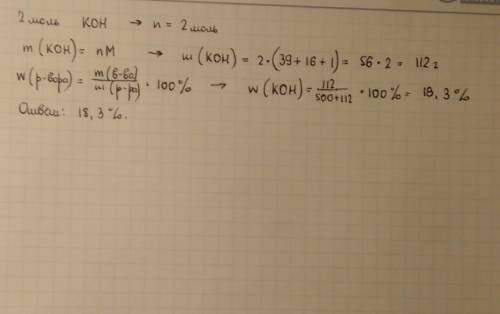 2 моль KOH → n = 2 моль
m (KOH) = nM → m (KOH) = 2·(39+16+1) = 56·2 = 112 г
w (р-вора) = m(в-ва) / m(р-ра) · 100% → w (KOH) = 112 / 500+112 · 100% = 18,3%
Ответ: 18,3%.